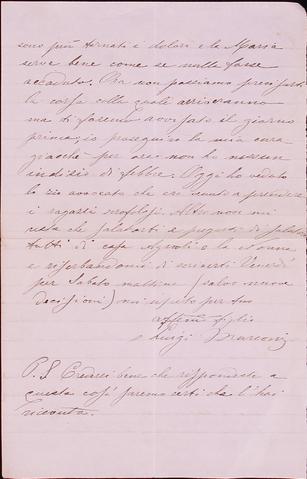 sono più tornati i dolori e la Maria
serve bene come se nulla fosse
accaduto. Ora non possiamo precisarti
la corsa colla quale arriveranno
ma ti faremo avvisato il giorno
prima, io proseguo la mia cura
giacchè per ora non ho nessun
indizio di febbre. Oggi ho veduto
lo zio avvocato che era venuto a prendere
i ragazzi Altro non mi
resta che salutarti e pregarti di salutare
tutti di casa e le donne
e riserbandomi di scriverti Venerdì
per Sabato mattina (salvo nuove
decisioni) mi ripeto per tuo
affmo figlio
Luigi
P.S. Crederei bene che rispondeste a
questa così saremo certi che l'hai
ricevuta.